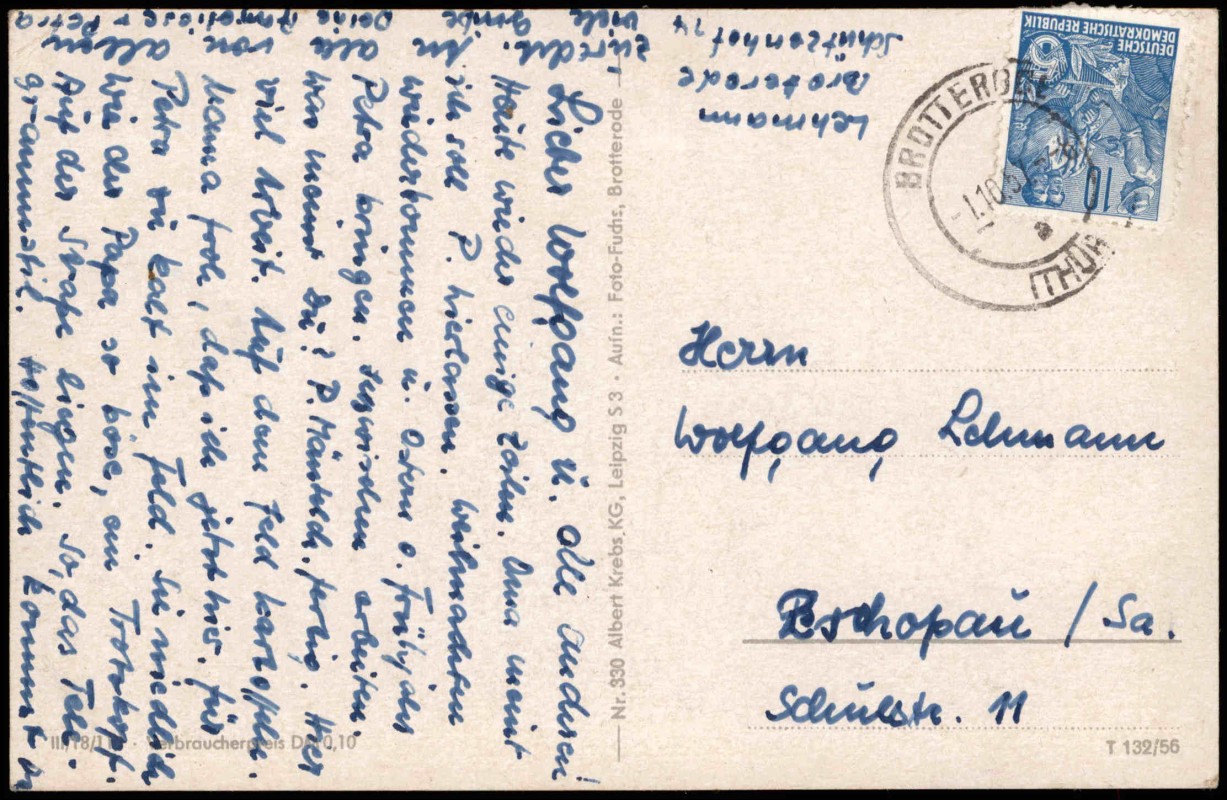 Lieber Wolfgang u. alle anderen!
Heute wieder einige Zeilen. Oma meint
ich soll P. hierlassen. Weihnachten
wiederkommen u. Ostern o. Frühjahr
Petra bringen. Inzwischen arbeiten
was meinst Du? P. Mäntelch. fertig. Hier
viel Arbeit. Auf dem Feld Kartoffeln.
Mama froh, daß ich jetzt hier. Für
Petra zu kalt im Feld. Sie niedlich
wie der Papa so böse, ein Trotzkopf.
Auf der Straße liegen. So, das Tele-
grammstil. Hoffentlich kommt Ihr
zurecht. An alle von allen
viele Grüße Deine Anneliese + Petra
Lehmann
Brotterode
Schützenhof 74
DEUTSCHE
DEMOKRATISCHE REPUBLIK
10
BROTTERODE
(THÜR
Nr. 330 Albert Krebs, KG, Leipzig S 3 · Aufn.: Foto-Fuchs, Brotterode
Herrn
Wolfgang Lehmann
Zschopau / Sa.
Schulstr. 11
III/18/11 · Verbraucherpreis DM 0,10
T 132/56